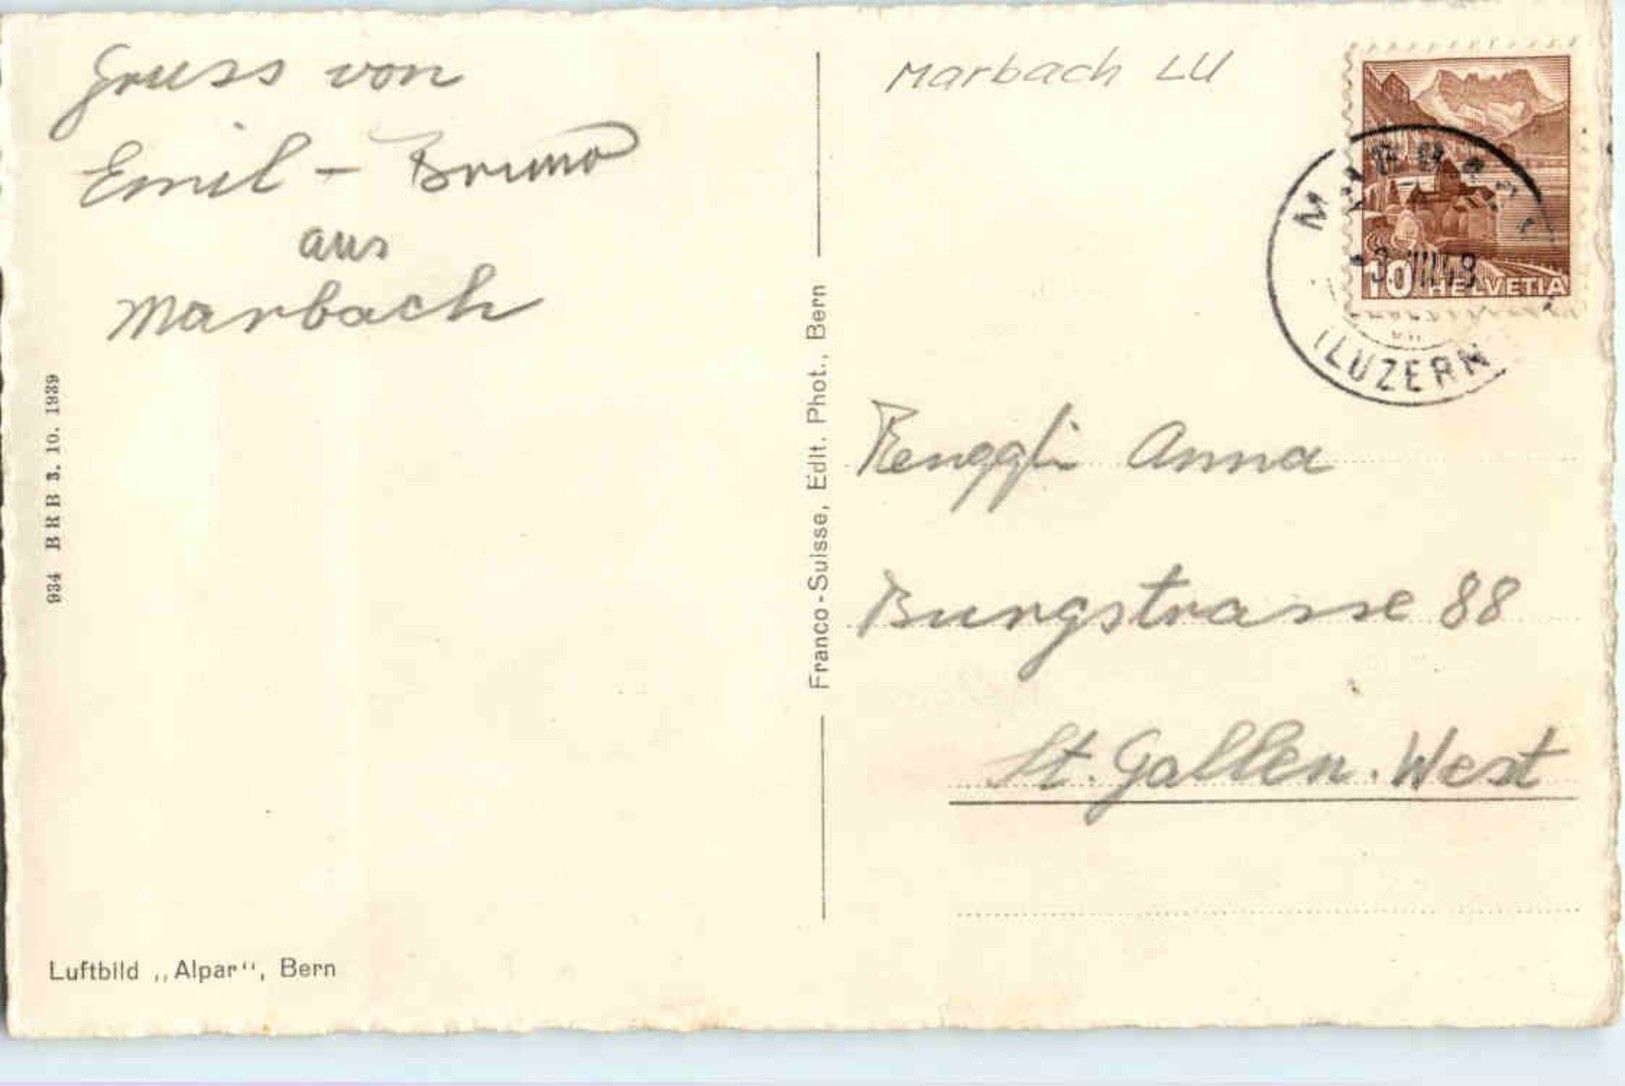 Gruss von
Emil - Bruno
aus
Marbach
934 BRB 3. 10. 1939
Luftbild „Alpar“, Bern
Franco-Suisse, Edit. Phot., Bern
Marbach LU
10 HELVETIA
MARBACH
(LUZERN
Renggli Anna
Burgstrasse 88
St. Gallen. West